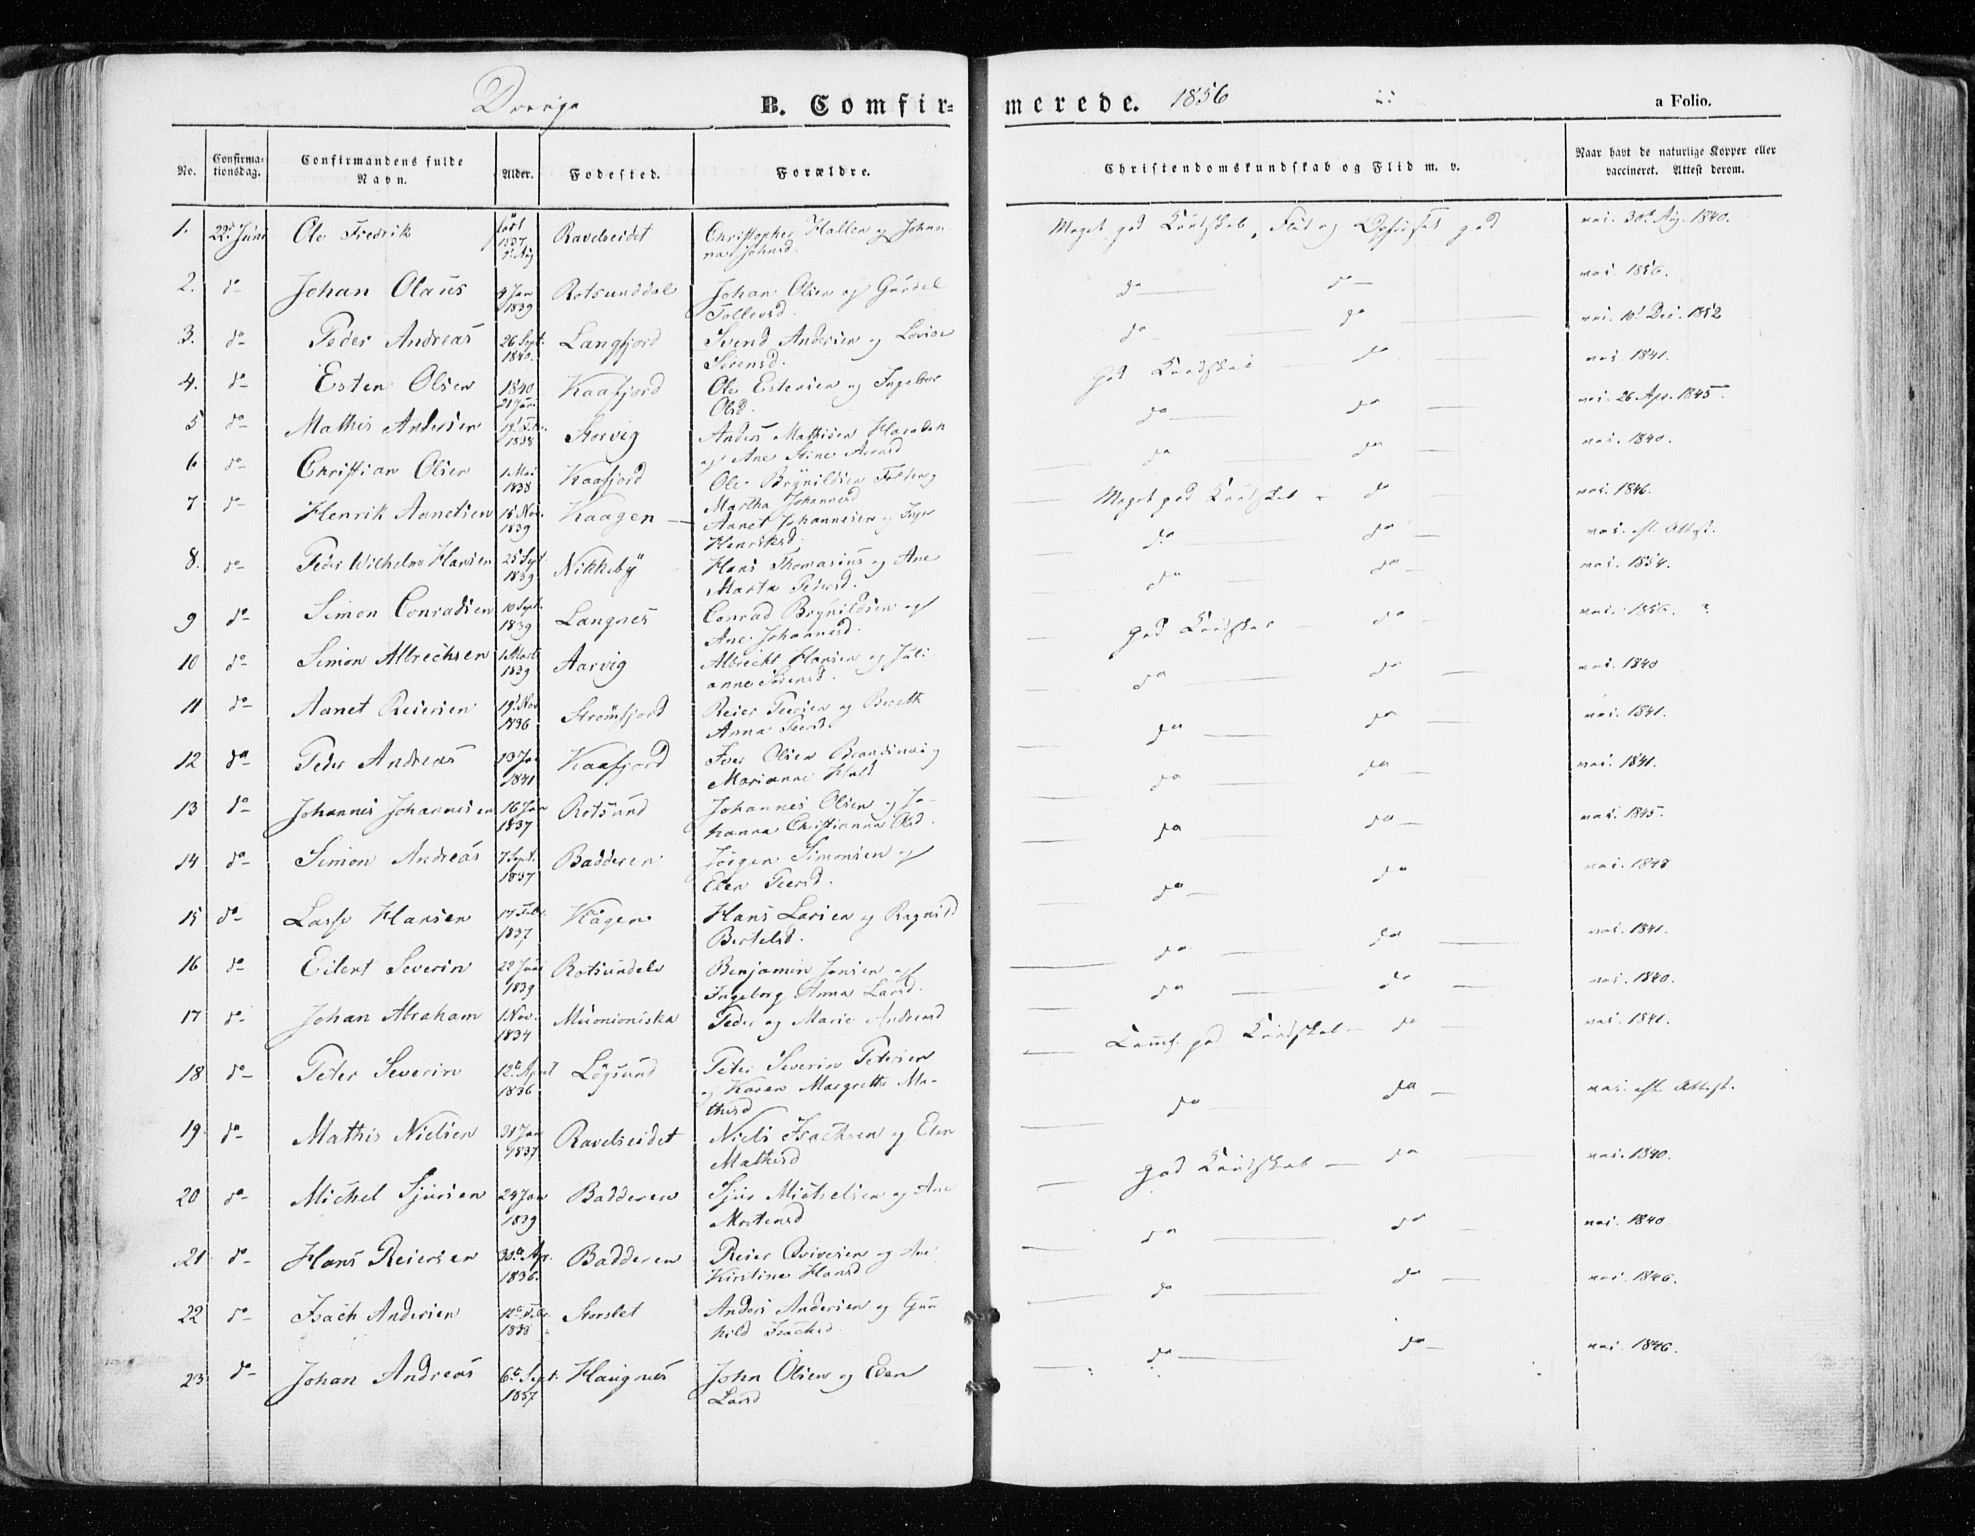 Drenge B. Comfir= merede. 1856 a Folio.
No. Confirma=tionsdag. Confirmandens fulde Navn. Alder. Fødested. Forældre. Christendomskundskab og Flid m. v. Naar havt de naturlige Kopper eller vaccineret. Attest derom.
1. 22d Juni Ole Fredrik født 1837 Ravelseidet Christopher Hallen og Johan- Meget god Kundskab, Flid og Opførsel god vac. 30d Aug. 1840.
na Johnsd.
2. do Johan Olaus 4 Jan 1839 Rotsunddal Johan Olsen og Gurdel do do vac. 1856.
Tollevsd.
3. do Peder Andreas 26 Sept. 1840. Langfjord Svend Andersen og Lovise do do vac. 10d Dec. 1852
Sørensd.
4. do Esten Olsen 1840 21 Jan. Kaafjord Ole Estensen og Ingebor God Kundskab do vac. 1841.
Olsd.
5 do Mathis Andersen 19d Febr. 1838 Storvig Anders Mathisen do do vac. 26 Apr. 1845.
og Ane Stine
6 do Christian Olsen 1 Mai 1838 Kaafjord Ole Brynildsen og do do vac. 1840.
Martha Johannesd
7 do Henrik Aanetsen 15 Nov. 1839 Kaagen Aanet Johannesen og Meget god Kundskab do vac. 1846.
Henriksd.
8. do Peder Wilhelm Hansen 25 Sept. 1839 Nikkeby Hans Thomasius og Ane do do vac. efl. Attest.
Marta Pedersd.
9 do Simon Conradsen 10 Sept. 1839 Langnes Conrad Brynildsen og do do vac. 1854.
Ane Johannesd.
10 do Simon Albrechsen 1 Marts 1839 Aarvig Albrecht Hansen og Juli God Kundskab do vac. 1856. ?
anne Sørensd.
11 do Aanet Reiersen 19d Nov 1836 Strømfjord Reier Peersen og Bereth do do vac. 1840
Anna Peersd.
12 do Peder Andreas 13 Jan 1841 Kaafjord Iver Olsen og do do vac. 1841.
Marianne Hald
13 do Johannes Johannesen 16 Jan 1837 Rotsund Johannes Olsen og Jo- do do vac. 1841.
hanna Christianna Olsd.
14 do Simon Andreas 7 Sept. 1837 Badderen Jørgen Simonsen og do do vac. 1845.
Elen Peersd.
15 do Lasse Hansen 17 Febr. 1837 Kaagen Hans Larsen og Ragnild do do vac. 1848
Bertelsd.
16 do Eilert Severin 22 Juni 1839 Rotsundelv Benjamin Jansen og do do vac. 1841.
Ingeborg Anna Larsd.
17 do Johan Abraham 1 Nov. 1834 Muonioniska Peder og Marie Andreasd do do vac. 1840.
18 do Peter Severin 12d April 1836. Løgsund Peter Severin Petersen Temml. god Kundskab do vac. 1841.
og Karen Margrethe Ma-
thisd
19 do Mathis Nielsen 31 Jan 1837 Ravelseidet Niels Isachsen og Elen do do vac. efl. Attest.
Mathisd
20 do Michel Sjursen 24 Jan 1839 Badderen Sjur Michelsen og Ane God Kundskab do vac. 1840.
Mortensd
21 do Hans Reiersen 30d Ap. 1836. Badderen Reier Qvivesen og Ane do do vac. 1840
Kirstine Hansd
22 do Isach Andersen 12d Febr. 1838 Storslet Anders Andersen og Gun do do vac. 1846.
hild Isachsd.
23 do Johan Andreas 6d Sept. 1837 Haugnes John Olsen og Elen do do vac. 1846.
Larsd